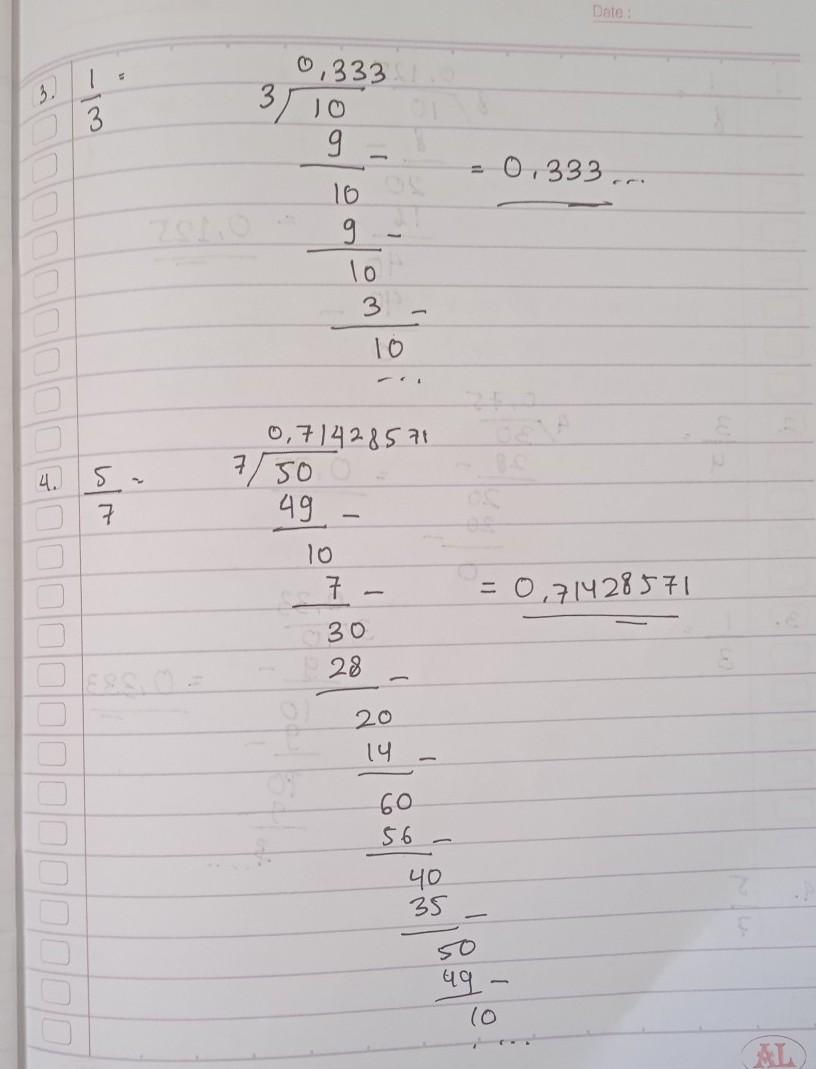 Date :
3. 1/3 =
0,333
3/10
9 -
10
9 -
10
3 -
10
...
= 0,333...
4. 5/7 =
0,71428571
7/50
49 -
10
7 -
30
28 -
20
14 -
60
56 -
40
35 -
50
49 -
10
....
= 0,71428571
AL